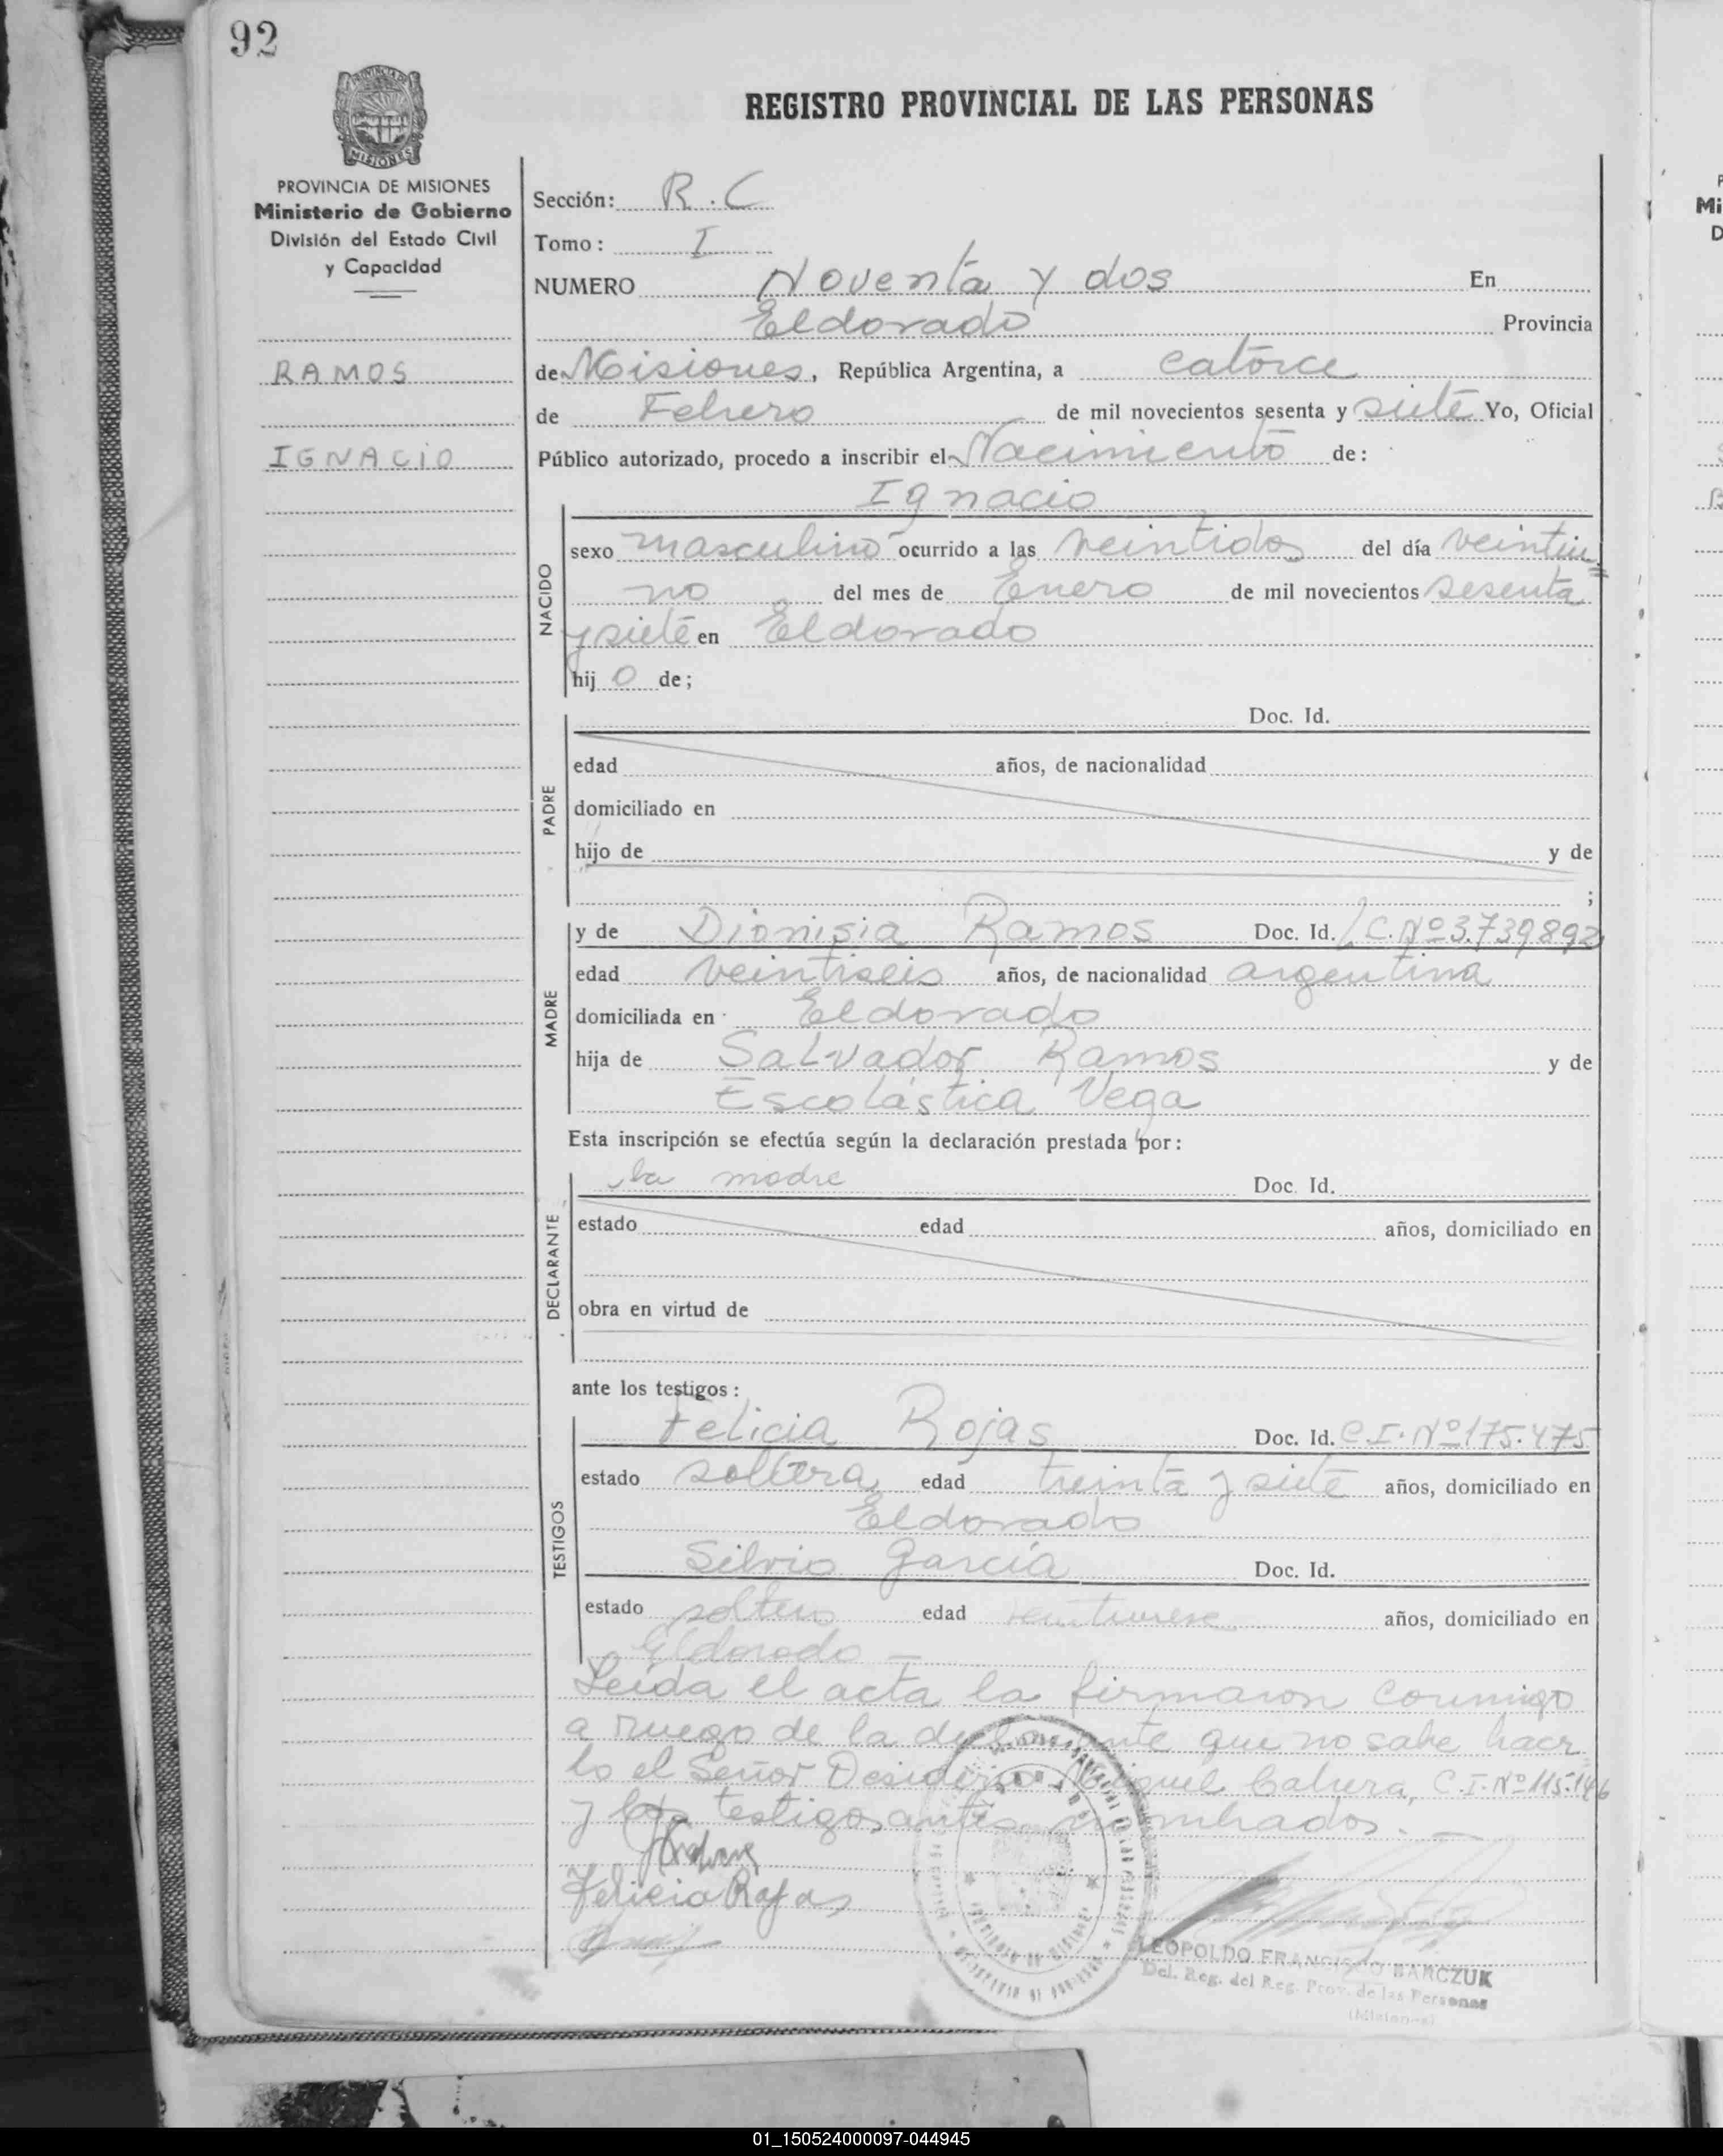 92
REGISTRO PROVINCIAL DE LAS PERSONAS
PROVINCIA DE MISIONES
Ministerio de Gobierno
División del Estado Civil
y Capacidad
RAMOS
IGNACIO
Sección: R.C
Tomo: I
NUMERO Noventa y dos En
Eldorado Provincia
de Misiones, República Argentina, a catorce
de Febrero de mil novecientos sesenta y siete Yo, Oficial
Público autorizado, procedo a inscribir el Nacimiento de:
Ignacio
NACIDO
sexo masculino ocurrido a las veintidos del día veintiu=
no del mes de Enero de mil novecientos sesenta
y siete en Eldorado
hij o de;
PADRE
Doc. Id.
edad años, de nacionalidad
domiciliado en
hijo de y de
;
MADRE
y de Dionisia Ramos Doc. Id. L.C. Nº 3.739892
edad veintiseis años, de nacionalidad argentina
domiciliada en Eldorado
hija de Salvador Ramos y de
Escolástica Vega
Esta inscripción se efectúa según la declaración prestada por:
DECLARANTE
la madre Doc. Id.
estado edad años, domiciliado en
obra en virtud de
ante los testigos:
TESTIGOS
Felicia Rojas Doc. Id. C.I. Nº 175.475
estado soltera edad treinta y siete años, domiciliado en
Eldorado
Silvio García Doc. Id.
estado soltero edad años, domiciliado en
Eldorado —
Leída el acta la firmaron conmigo
a ruego de la declarante que no sabe hacer
lo el Señor Desiderio Miguel Cabrera, C.I. Nº 115.146
y los testigos antes nombrados. —
Felicia Rojas
LEOPOLDO FRANCISCO BARCZUK
Del. Reg. del Reg. Prov. de las Personas
(Misiones)
01_150524000097-044945